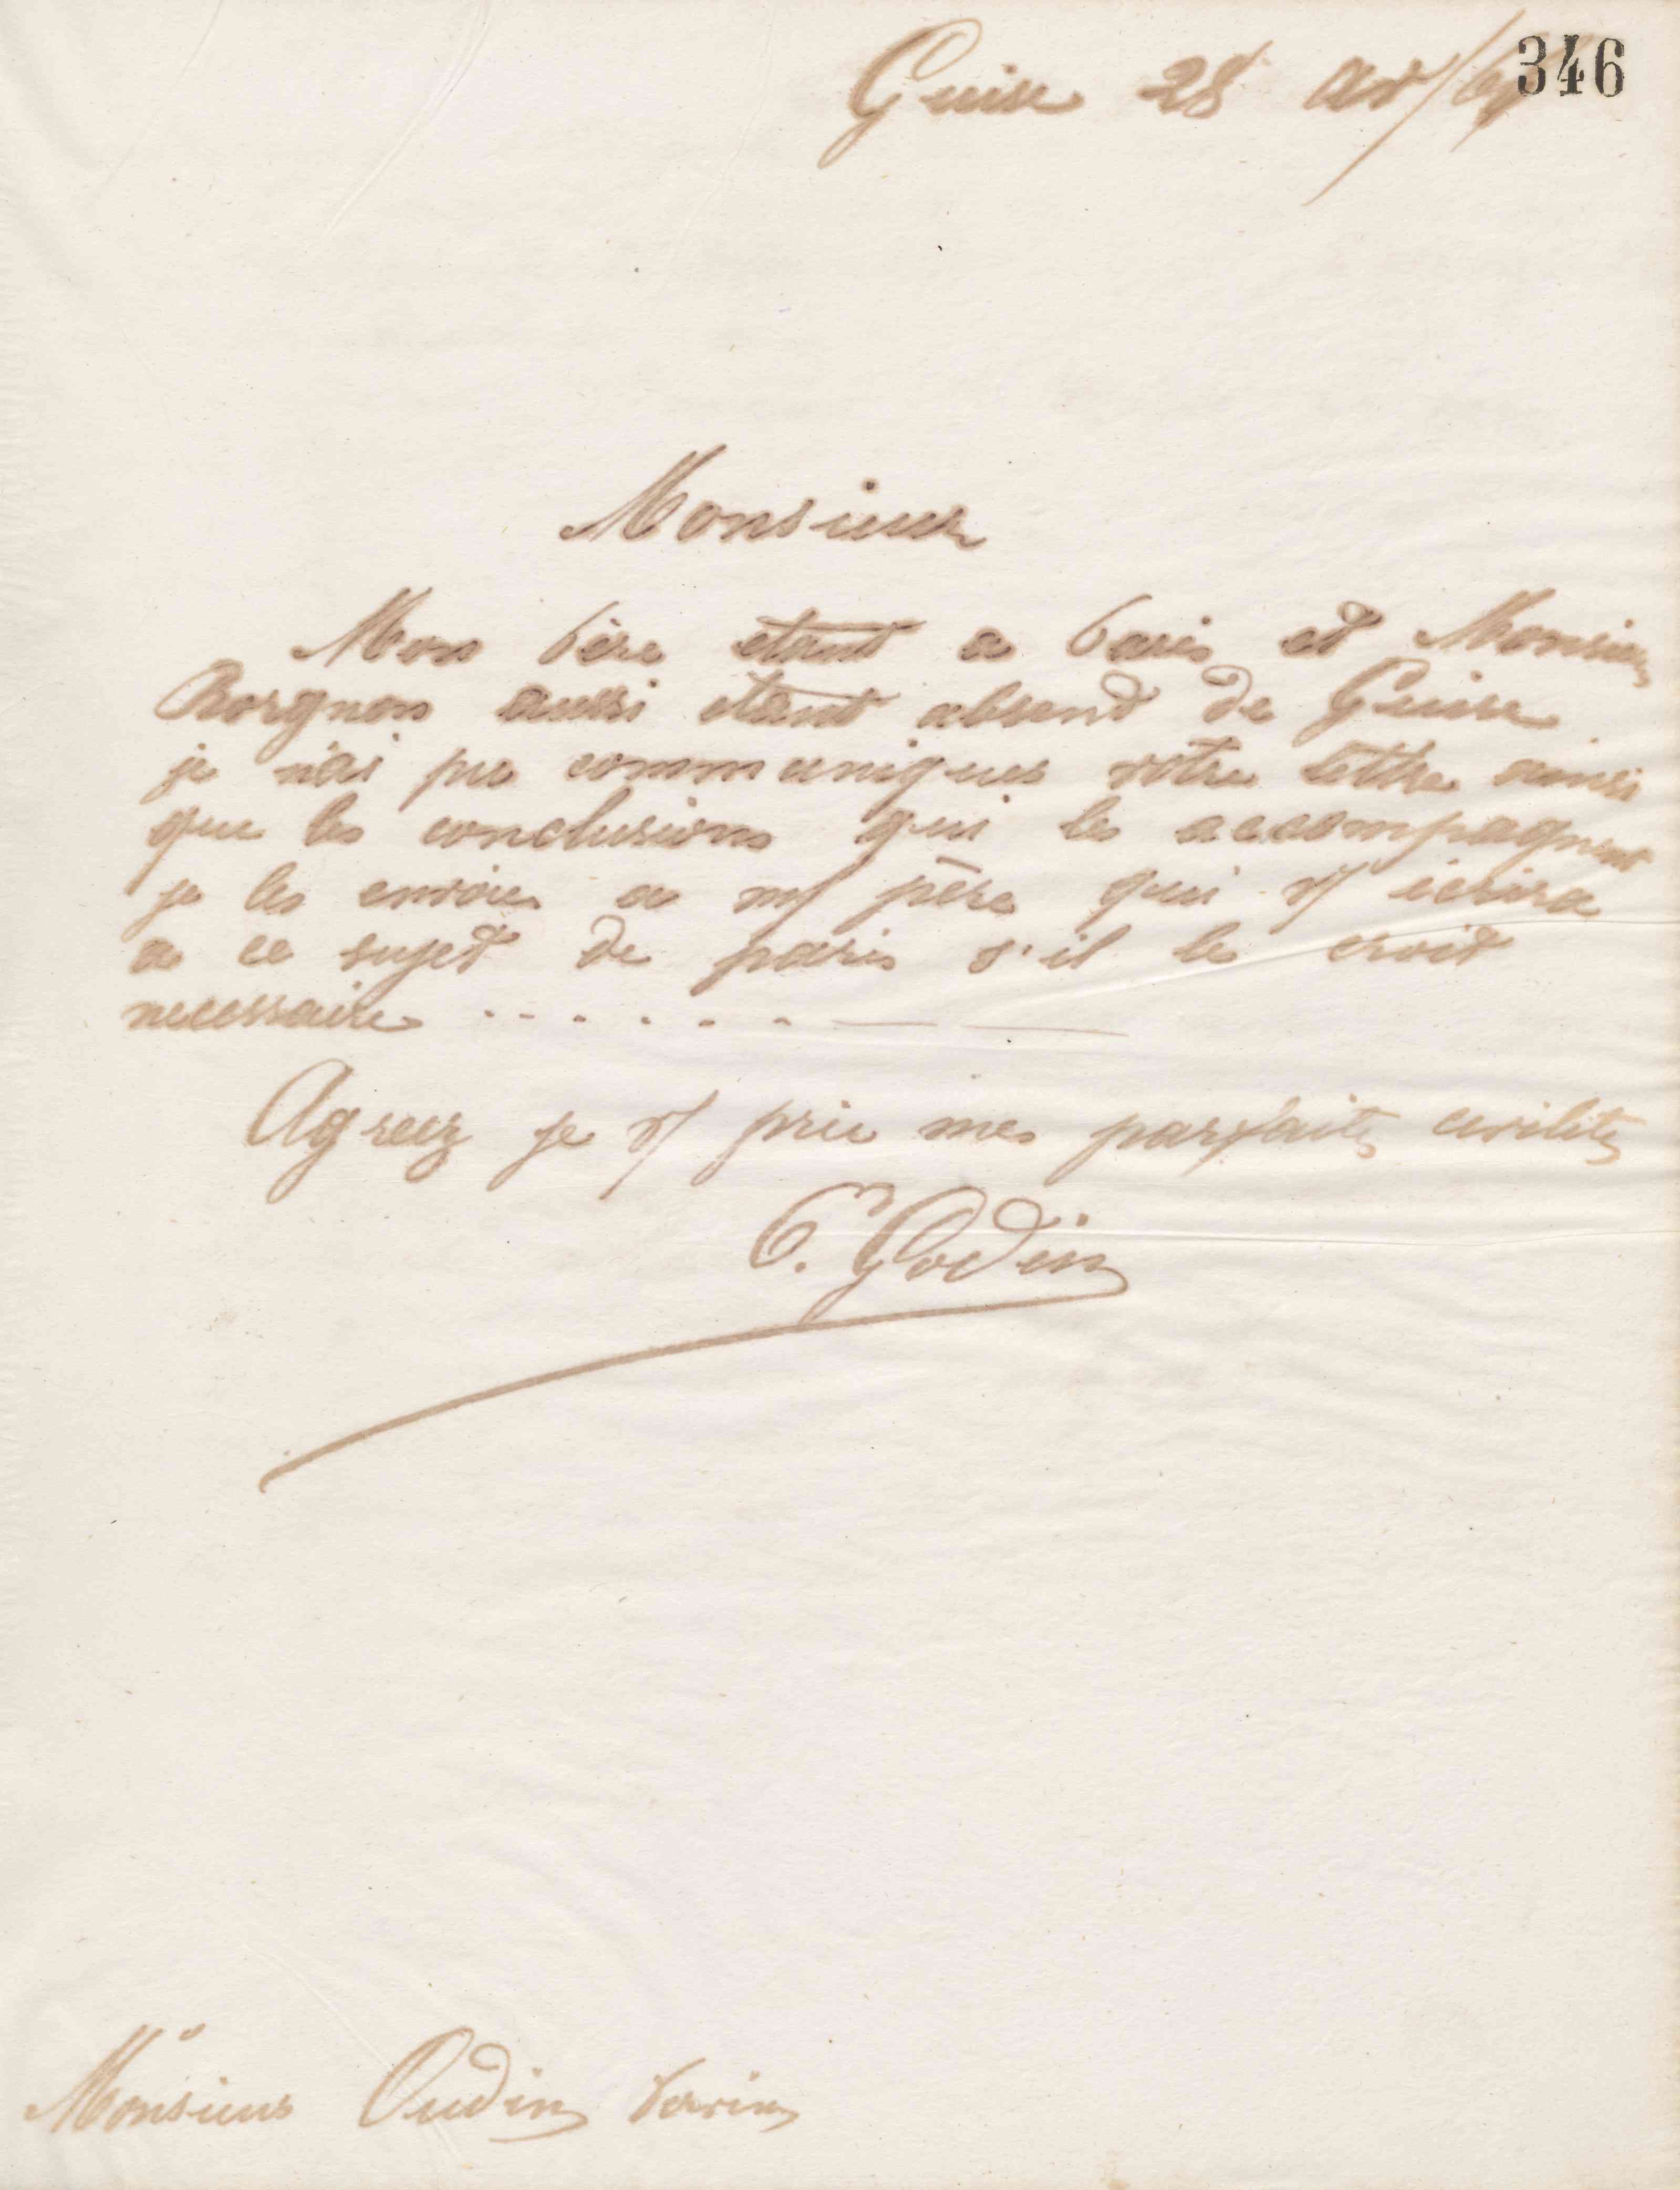 346
Guise 28 av/
Monsieur
Mon Père etant a Paris et Monsieur
Borgnon aussi etant absent de Guise
je n'ai pu communiquer votre lettre ainsi
que les conclusions qui les accompagnent
je les envoie a m/ père qui v/ écrira
a ce sujet de paris s'il le croit
necessaire . . . . . . . — —
Agreez je v/ prie mes parfaites civilités
E. Godin
Monsieur Oudin